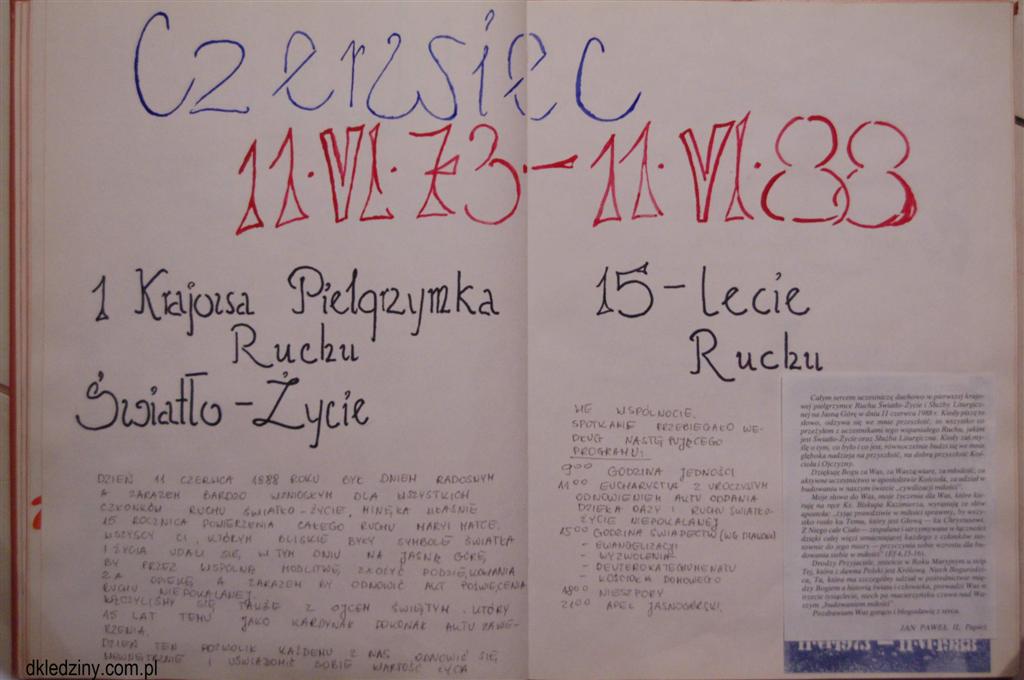 Czerwiec
11.VI.73.-11.VI.88
1 Krajowa Pielgrzymka
Ruchu
Światło-Życie
DZIEŃ 11 CZERWCA 1988 ROKU BYŁ DNIEM RADOSNYM
A ZARAZEM BARDZO WZNIOSŁYM DLA WSZYSTKICH
CZŁONKÓW RUCHU ŚWIATŁO-ŻYCIE. MINĘŁA WŁAŚNIE
15 ROCZNICA POWIERZENIA CAŁEGO RUCHU MARYI MATCE.
WSZYSCY CI, KTÓRYM BLISKIE BYŁY SYMBOLE ŚWIATŁA
I ŻYCIA UDALI SIĘ, W TYM DNIU NA JASNĄ GÓRĘ,
BY PRZEZ WSPÓLNĄ MODLITWĘ ZŁOŻYĆ PODZIĘKOWANIA
ZA OPIEKĘ A ZARAZEM BY ODNOWIĆ AKT POŚWIĘCENIA
RUCHU NIEPOKALANEJ.
ŁĄCZYLIŚMY SIĘ TAKŻE Z OJCEM ŚWIĘTYM, KTÓRY
15 LAT TEMU JAKO KARDYNAŁ DOKONAŁ AKTU ZAWIE-
RZENIA.
DZIEŃ TEN POZWOLIŁ KAŻDEMU Z NAS ODNOWIĆ SIĘ
WEWNĘTRZNIE I UŚWIADOMIĆ SOBIE WARTOŚĆ ŻYCIA
15-lecie
Ruchu
WE WSPÓLNOCIE.
SPOTKANIE PRZEBIEGAŁO WE-
DŁUG NASTĘPUJĄCEGO
PROGRAMU:
9⁰⁰ GODZINA JEDNOŚCI
11⁰⁰ EUCHARYSTIA Z UROCZYSTYM
ODNOWIENIEM AKTU ODDANIA
DZIEŁA OAZY I RUCHU ŚWIATŁO-
ŻYCIE NIEPOKALANEJ
15⁰⁰ GODZINA ŚWIADECTW (WG DIAKONII)
- EWANGELIZACJI
- WYZWOLENIA
- DEUTEROKATECHUMENATU
- KOŚCIOŁA DOMOWEGO
18⁰⁰ NIESZPORY
21⁰⁰ APEL JASNOGÓRSKI.
Całym sercem uczestniczę duchowo w pierwszej krajo-
wej pielgrzymce Ruchu Światło-Życie i Służby Liturgicz-
nej na Jasną Górę w dniu 11 czerwca 1988 r. Kiedy piszę to
słowo, odzywa się we mnie przeszłość, to wszystko co
przeżyłem z uczestnikami tego wspaniałego Ruchu, jakim
jest Światło-Życie oraz Służba Liturgiczna. Kiedy zaś my-
ślę o tym, co było i co jest, równocześnie budzi się we mnie
głęboka nadzieja na przyszłość, na dobrą przyszłość Koś-
cioła i Ojczyzny.
Dziękuję Bogu za Was, za Waszą wiarę, za młodość, za
aktywne uczestnictwo w apostolstwie Kościoła, za udział w
budowaniu w naszym świecie „cywilizacji miłości".
Moje słowo do Was, moje życzenia dla Was, które kie-
ruję na ręce Ks. Biskupa Kazimierza, wyrażają się w słów
apostoła: „żyjąc prawdziwie w miłości sprawmy, by wszy-
stko rosło ku Temu, który jest Głową — ku Chrystusowi.
Z Niego całe Ciało — zespalane i utrzymywane w łączności
dzięki całej więzi umacniającej każdego z członków sto-
sownie do jego miary — przyczynia sobie wzrostu dla bu-
dowania siebie w miłości" (Ef 4,15-16).
Drodzy Przyjaciele, mieście w Roku Maryjnym u stóp
Tej, która z dawna Polski jest Królową. Niech Bogarodzi-
ca, Ta, która ma szczególny udział w pośrednictwie mię-
dzy Bogiem a historią świata i człowieka, prowadzi Was w
trzecie tysiąclecie, niech po macierzyńsku czuwa nad Wa-
szym „budowaniem miłości".
Pozdrawiam Was gorąco i błogosławię z serca.
JAN PAWEŁ II, Papież
11.VI.1973 - 11.VI.1988
dkledziny.com.pl